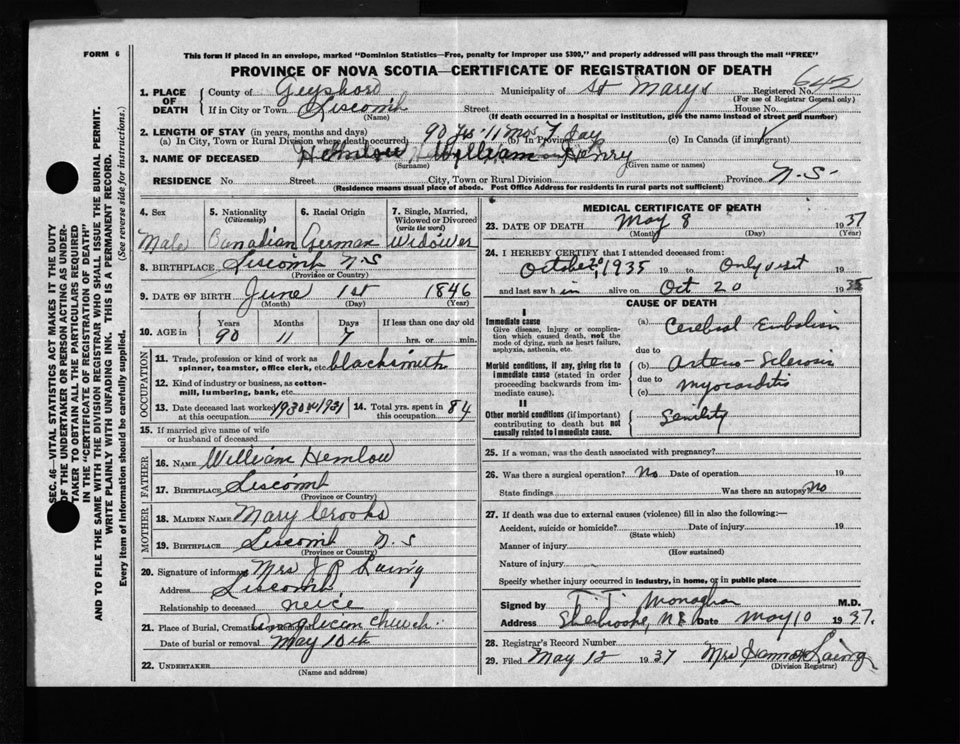 FORM 6
This form if placed in an envelope, marked "Dominion Statistics—Free, penalty for improper use $300," and properly addressed will pass through the mail "FREE"
PROVINCE OF NOVA SCOTIA—CERTIFICATE OF REGISTRATION OF DEATH
1. PLACE OF DEATH
County of Guysboro Municipality of St Marys Registered No. 642
(For use of Registrar General only)
If in City or Town Liscomb Street House No.
(Name) (If death occurred in a hospital or institution, give the name instead of street and number)
2. LENGTH OF STAY (in years, months and days)
(a) In City, Town or Rural Division where death occurred 90 yrs-11 mos 7 day (b) In Province (c) In Canada (if immigrant)
3. NAME OF DECEASED Hemlow William Henry
(Surname) (Given name or names)
RESIDENCE No. Street City, Town or Rural Division Province N.S.
(Residence means usual place of abode. Post Office Address for residents in rural parts not sufficient)
4. Sex Male
5. Nationality (Citizenship) Canadian
6. Racial Origin German
7. Single, Married, Widowed or Divorced (write the word) Widower
8. BIRTHPLACE Liscomb N.S
(Province or Country)
9. DATE OF BIRTH June 1st 1846
(Month) (Day) (Year)
10. AGE in Years Months Days If less than one day old
90 11 7 hrs. or min.
OCCUPATION
11. Trade, profession or kind of work as spinner, teamster, office clerk, etc. blacksmith
12. Kind of industry or business, as cotton-mill, lumbering, bank, etc.
13. Date deceased last worked at this occupation 1930 or 1931
14. Total yrs. spent in this occupation 84
15. If married give name of wife or husband of deceased
FATHER
16. NAME William Hemlow
17. BIRTHPLACE Liscomb
(Province or Country)
MOTHER
18. MAIDEN NAME Mary Crooks
19. BIRTHPLACE Liscomb N.S
(Province or Country)
20. Signature of informant Mrs J R Laing
Address Liscomb
Relationship to deceased neice
21. Place of Burial, Cremation or Removal Anglican church
Date of burial or removal May 10th
22. UNDERTAKER
(Name and address)
MEDICAL CERTIFICATE OF DEATH
23. DATE OF DEATH May 8 1937
(Month) (Day) (Year)
24. I HEREBY CERTIFY that I attended deceased from:
October 20, 1935 19 to Only visit 19
and last saw him alive on Oct 20 1935
CAUSE OF DEATH
I
Immediate cause
Give disease, injury or complication which caused death, not the mode of dying, such as heart failure, asphyxia, asthenia, etc.
(a) Cerebral Embolism
due to
Morbid conditions, if any, giving rise to immediate cause (stated in order proceeding backwards from immediate cause).
(b) Arterio-Sclerosis
due to
(c) myocarditis
II
Other morbid conditions (if important) contributing to death but not causally related to immediate cause.
Senility
25. If a woman, was the death associated with pregnancy?
26. Was there a surgical operation? No Date of operation 19
State findings Was there an autopsy? No
27. If death was due to external causes (violence) fill in also the following:—
Accident, suicide or homicide? Date of injury 19
(State which)
Manner of injury
(How sustained)
Nature of injury
Specify whether injury occurred in industry, in home, or in public place
Signed by T. T. Monaghan M.D.
Address Sherbrooke, N.S. Date May 10 1937.
28. Registrar's Record Number
29. Filed May 12 1937 Mrs Laing
(Division Registrar)
SEC. 46—VITAL STATISTICS ACT MAKES IT THE DUTY
OF THE UNDERTAKER OR PERSON ACTING AS UNDER-
TAKER TO OBTAIN ALL THE PARTICULARS REQUIRED
IN THE "CERTIFICATE OF REGISTRATION OF DEATH"
AND TO FILE THE SAME WITH THE DIVISION REGISTRAR WHO SHALL ISSUE THE BURIAL PERMIT.
WRITE PLAINLY WITH UNFADING INK. THIS IS A PERMANENT RECORD.
Every item of information should be carefully supplied. (See reverse side for instructions.)